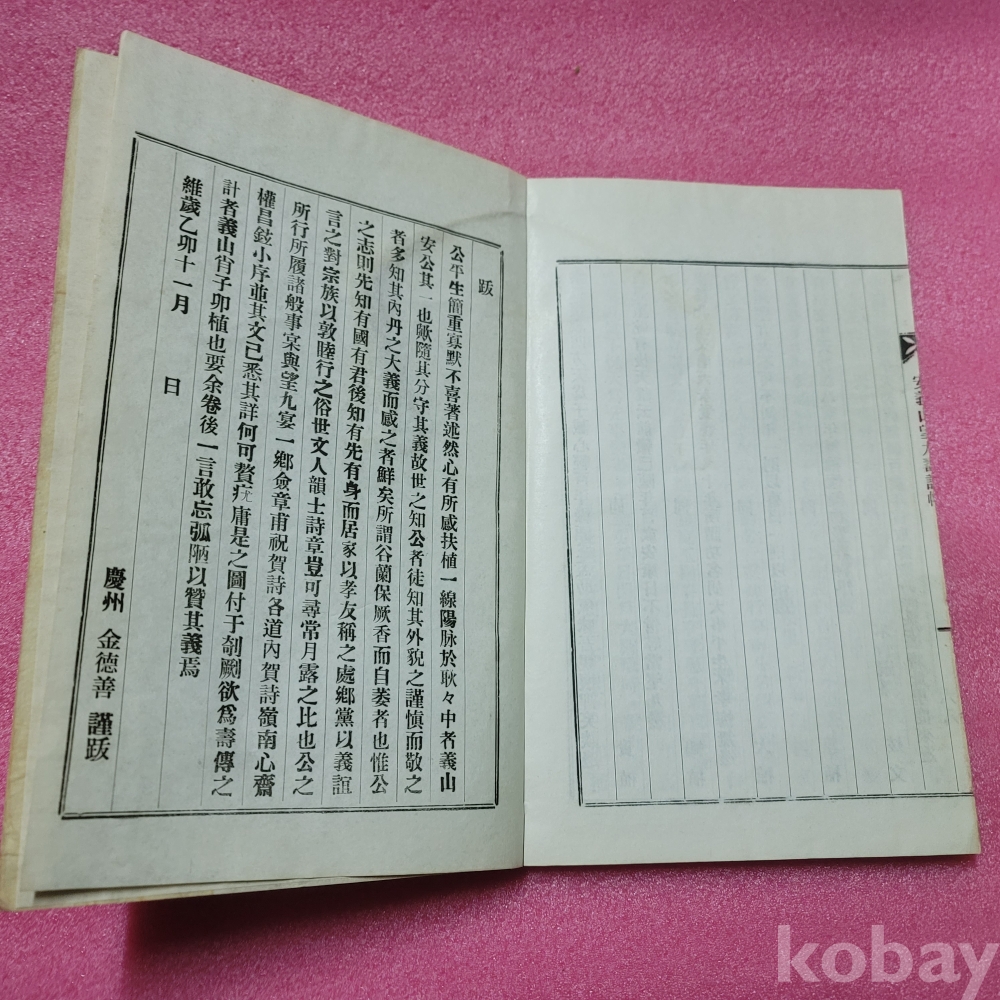 跋
公平生簡重寡默不喜著述然心有所感扶植一線陽脉於耿々中者義山
安公其一也歟隨其分守其義故世之知公者徒知其外貌之謹愼而敬之
者多知其內丹之大義而感之者鮮矣所謂谷蘭保厥香而自萎者也惟公
之志則先知有國有君後知有先有身而居家以孝友稱之處鄕黨以義誼
言之對宗族以敦睦行之俗世文人韻士詩章豈可尋常月露之比也公之
所行所履諸般事案與望九宴一鄕僉章甫祝賀詩各道內賀詩嶺南心齋
權昌鉉小序並其文已悉其詳何可贅疣庸是之圖付于剞劂欲爲壽傳之
計者義山肖子卯植也要余卷後一言敢忘弧陋以贊其義焉
維歲乙卯十一月 日
慶州 金德善 謹跋
安義山望九
kobay